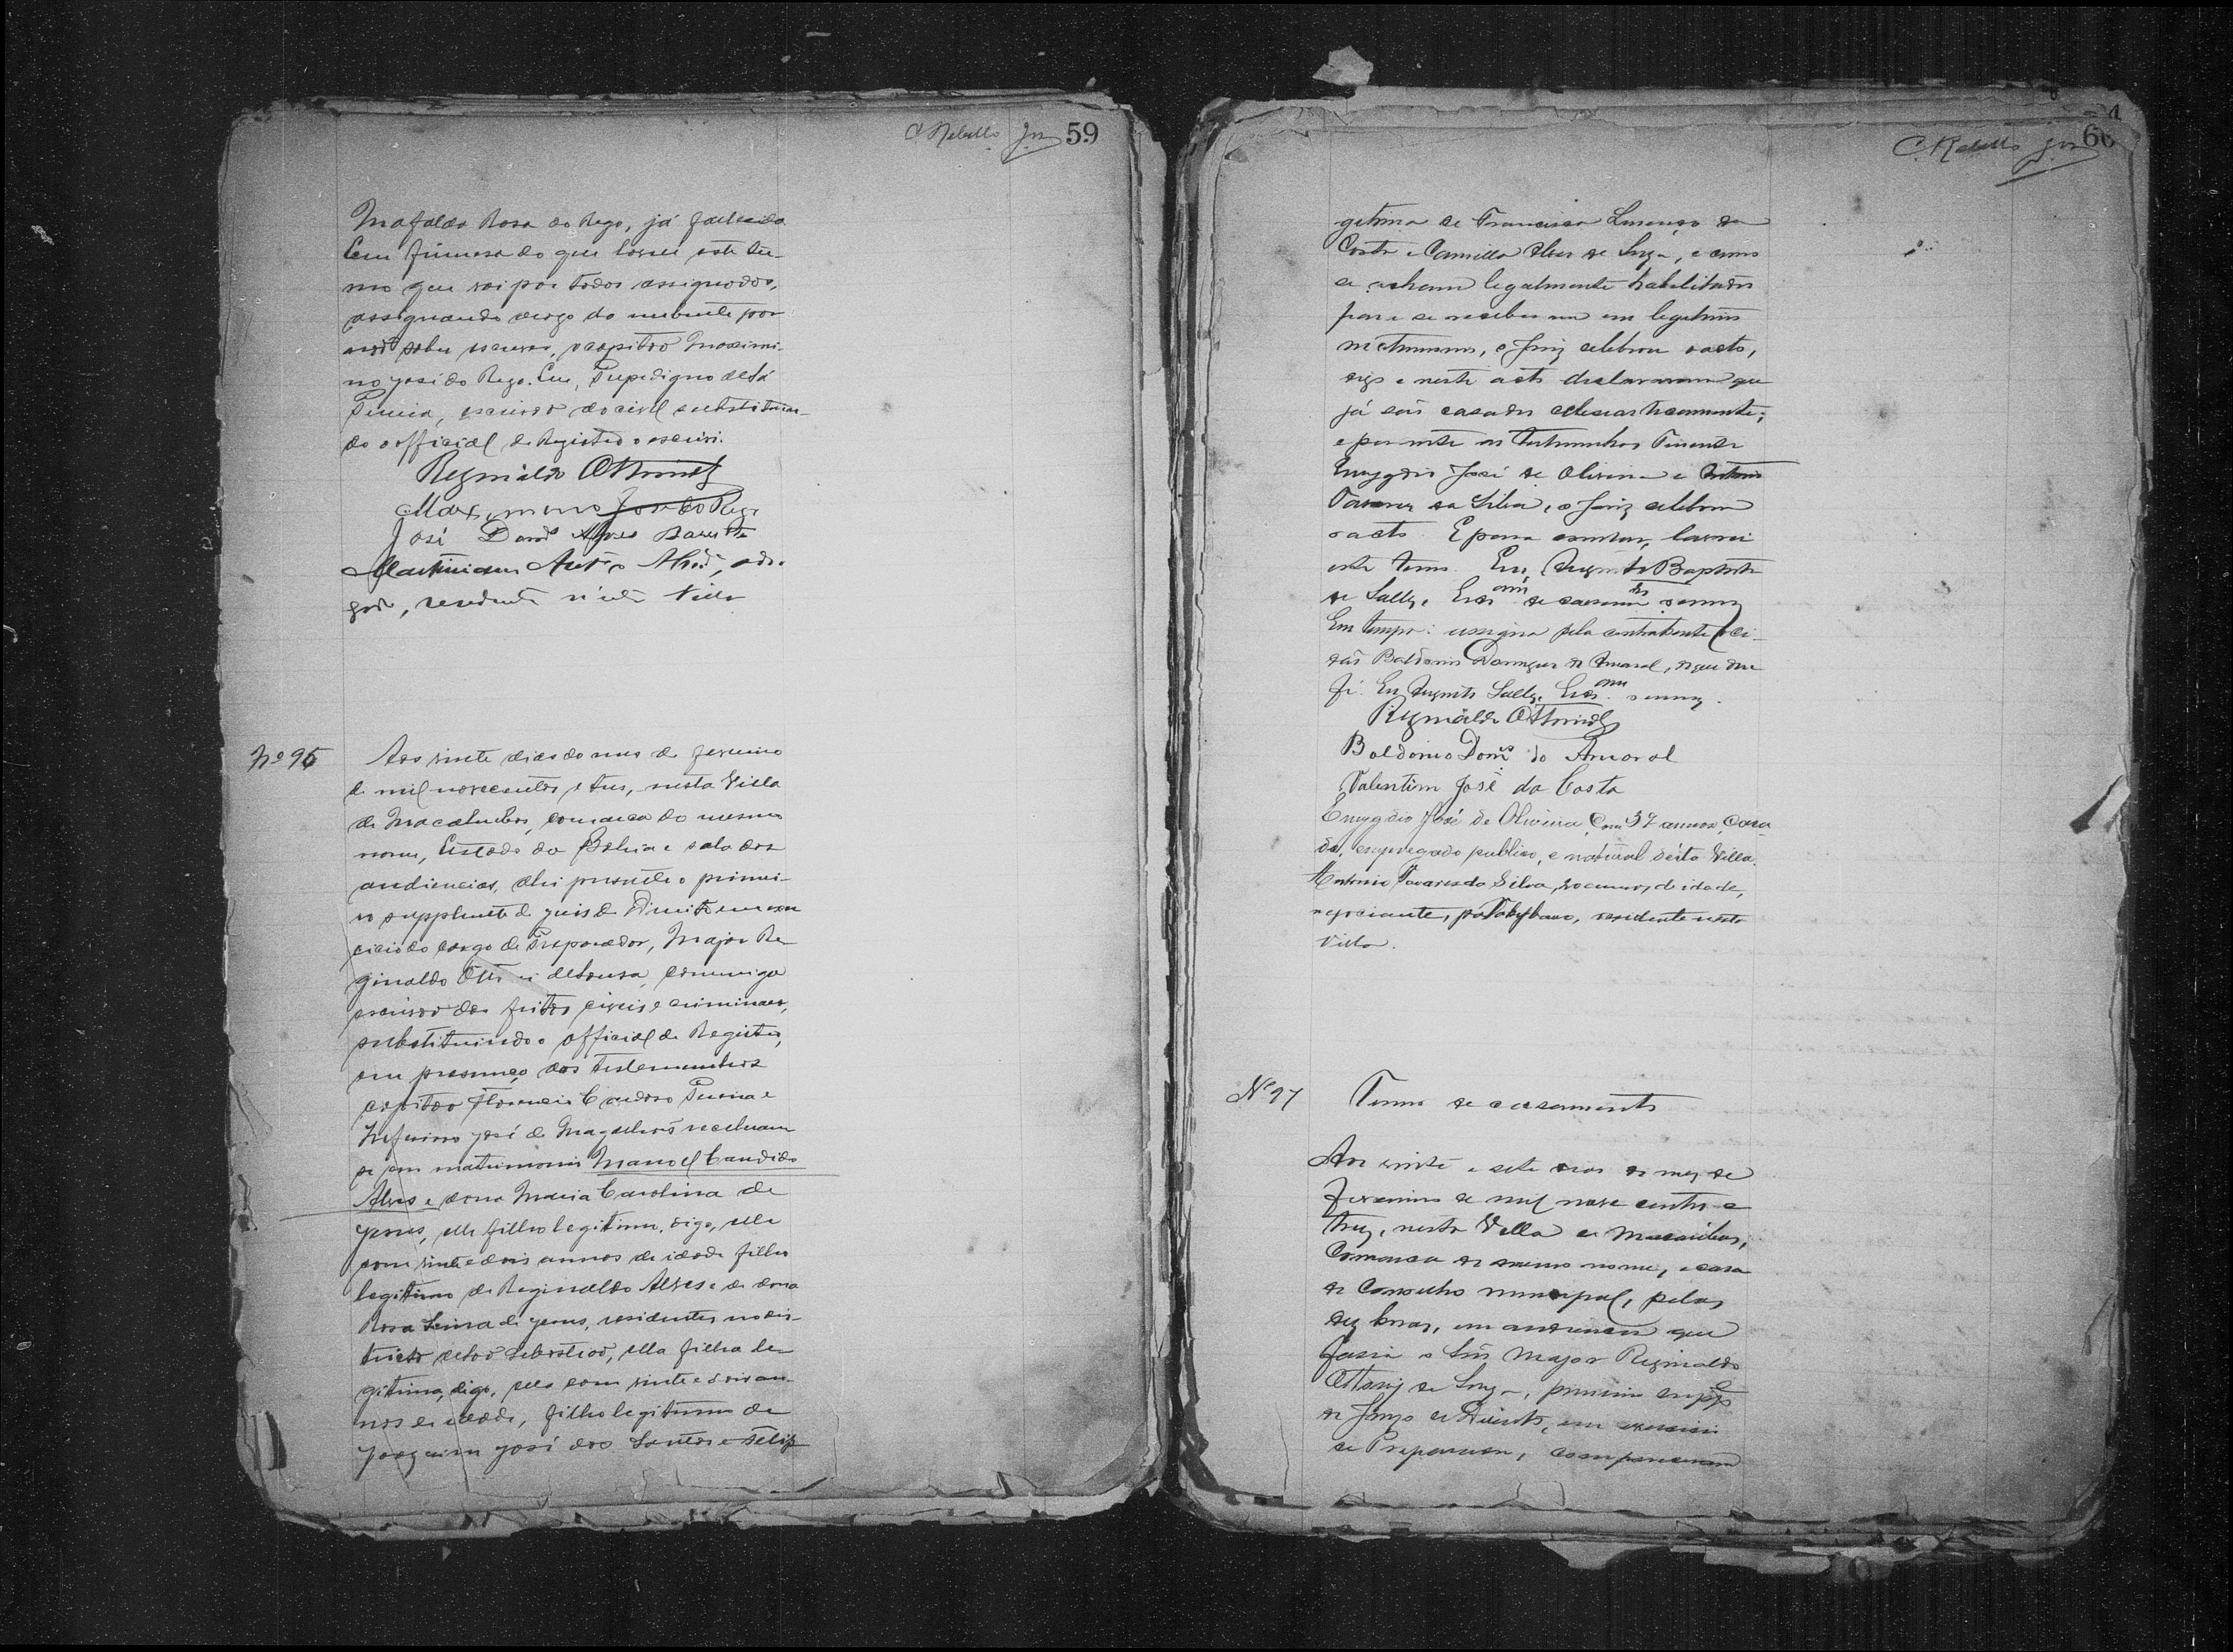 C. Rebello Jor 59
Mafalda Rosa do Rego, já fallecida
Em firmesa do que lavrei este ter-
mo que vai por todos assignados,
assignando a rogo da nubente por
não saber escrever, o capitão Maximi-
no José do Rego. Eu,
Pereira, escrivão do civel substituin-
do o official de Registro o escrivi.
Reginaldo Ottoni de Sz
Maximino José do Rego
José Domes Alves Barretto
Martiniano Antº
gado, residente n'esta Villa
Nº 96
Aos vinte dias do mes de Fevereiro
de mil novecentos e tres, nesta Villa
de Macahubas, comarca do mesmo
nome, Estado da Bahia e sala das
audiencias, ahi presente o primei-
ro supplente de juis de Direito em exer
cicio do cargo de Preparador, Major Re
ginaldo Ottoni de Sousa, commigo
escrivão dos feitos civeis e criminaes,
substituindo o official de Registro,
em presença das testemunhas
capitão Florencio Cardoso Pereira e
Zeferino José de Magalhães receberam
se em matrimonio Manoel Candido
Alves e dona Maria Carolina de
Jesus, elle filho legitimo, digo, elle
com vinte e dois annos de idade filho
legitimo de Reginaldo Alves e de dona
Rosa Lima de Jesus, residentes no dis-
tricto de São Sebastião, ella filha le-
gitima, digo, ella com vinte e dois an-
nos de idade, filha legitima de
Joaquim José dos Santos e Felip
C. Rebello Jor 60
gitima de Francisco Lourenço da
Costa e Camilla Alves de Souza, e como
se acham legalmente habilitados
para se receberem em legitimo
matrimonio, o Juiz celebrou o acto,
digo e neste acto declararam que
já são casados eclesiasticamente;
e perante as testemunhas Tenente
Emygdio José de Oliveira e Antonio
Tavares da Silva, o Juiz celebrou
o acto. E para constar, lavrei
este termo. Eu, Augusto Baptista
de Salles, Escrm de casamtos o escrevy
Em tempo: assigna pela contrahente o ci-
dão Baldoino Domingues do Amaral, do que dou
fé. Eu Augusto Salles, Escrm o escrevy.
Reginaldo Ottoni de Sz
Baldoino Domes do Amaral
Valentim José da Costa
Emygdio José de Oliveira, Com 37 annos, Casa
do, empregado publico, e natural désta Villa.
Antonio Tavares da Silva, annos, de idade,
negociante, residente nesta
Villa.
Nº 97
Termo de casamento
Aos vinte e sete dias do mez de
Fevereiro de mil nove centos e
trez, nesta Villa de Macaúbas,
Comarca do mesmo nome, e casa
do Conselho municipal, pelas
dez horas, em audiencia que
fasia o Snr. Major Reginaldo
Ottonij de Souza, primeiro suppe
do Juizo de Direito, em exercicio
de Preparador, compareceram